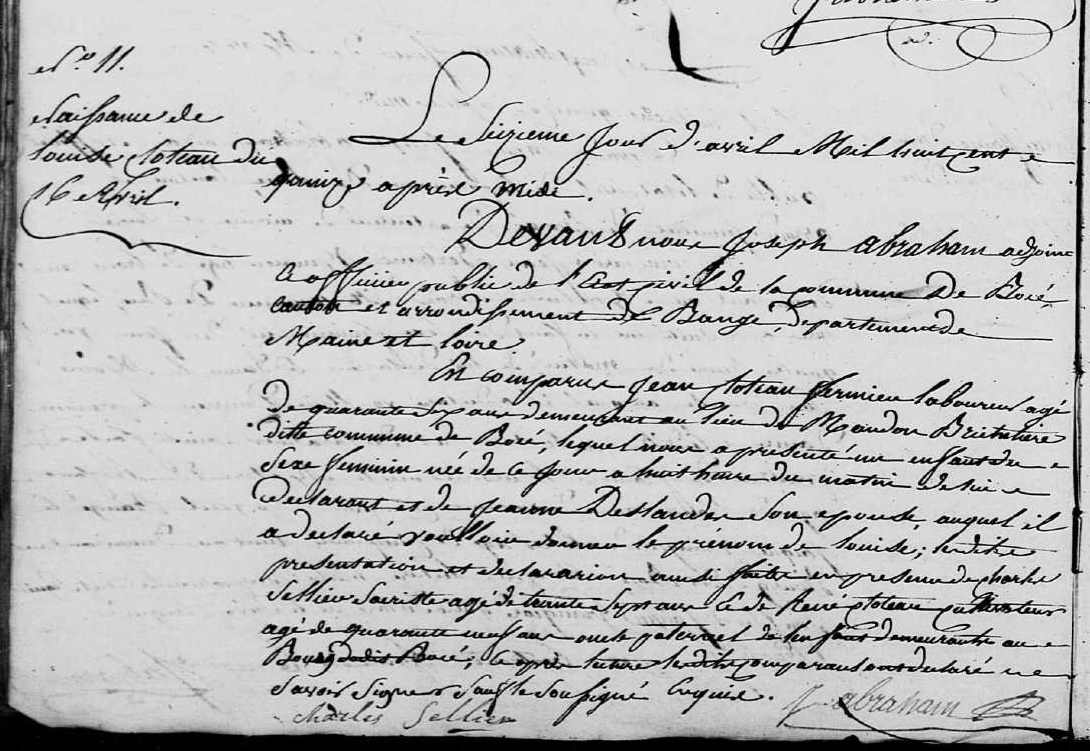 N.º 11.
Naissance de
Louise Cloteau du
16 Avril.
Le Seizieme Jour d'avril Mil huit cent
quinze après Midi.
Devant nous Joseph abraham adjoint
officier public de l'Etat civil de la commune De Bocé,
canton et arrondissement de Baugé, departement de
Maine et Loire
En comparu Jean Cloteau fermier laboureur agé
de quarante Six ans demeurant au lieu de
ditte commune de Bocé, lequel nous a presenté un enfant du
Sexe feminin née de ce Jour a huit heure du matin de lui
declarant et de Jeanne Deslandes Son epouse, auquel il
a declaré voulloir donner le prenom de Louise; lesditte
presentation et declaration ainsi faitte en presence de charles
Sellier Sacriste agé de trente Sept ans Et de René Cloteau Cultivateur
agé de quarante neuf ans oncle paternel de l'enfant demeurants au
Bourg dudit Bocé; Et après lecture lesdits comparants ont declaré ne
Savoir Signer Sauf le Soussigné Enquis.
Charles Sellier
J. abraham